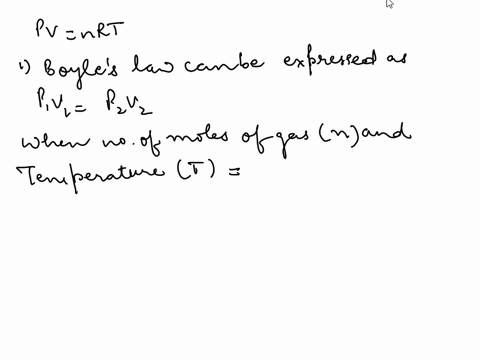 PV = nRT
1) Boyle's law can be expressed as
P₁V₁ = P₂V₂
when no. of moles of gas (n) and
Temperature (T) =